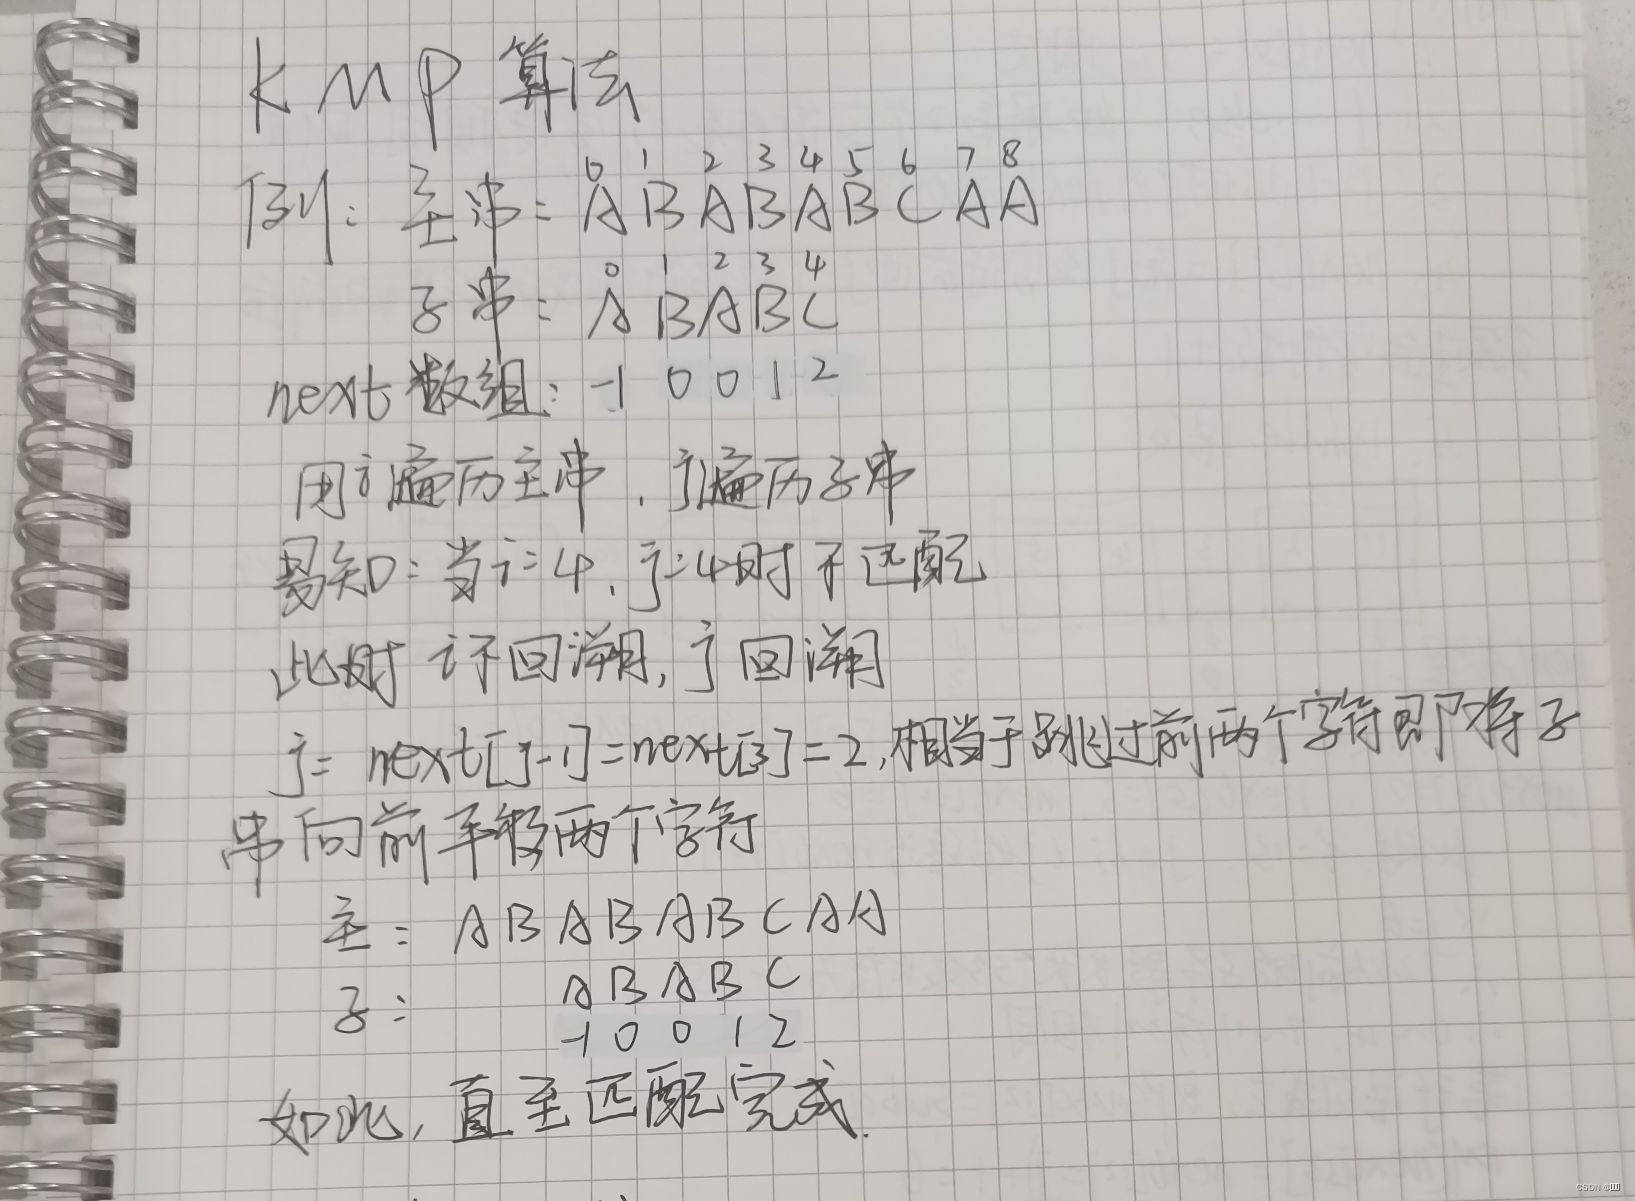 KMP 算法
0 1 2 3 4 5 6 7 8
例: 主串: A B A B A B C A A
0 1 2 3 4
子串: A B A B C
next数组: -1 0 0 1 2
用i遍历主串,j遍历子串
易知:当i=4,j=4时不匹配
此时i不回溯,j回溯
j= next[j-1]=next[3]=2,相当于跳过前两个字符即将子
串向前平移两个字符
主: A B A B A B C A A
A B A B C
子:
-1 0 0 1 2
如此,直至匹配完成.
CSDN @皿